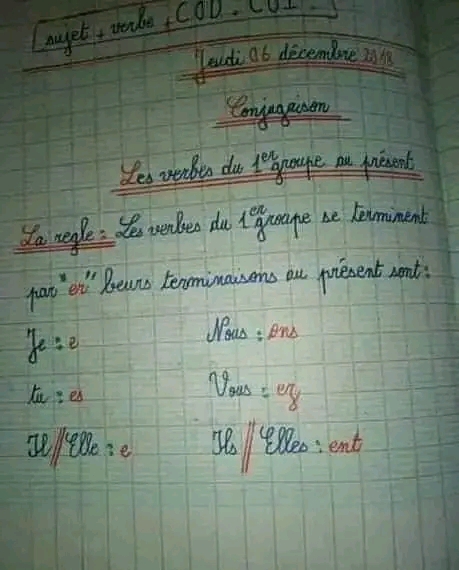 sujet + verbe + COD - COI -
Jeudi 06 décembre 2018
Conjugaison
Les verbes du 1er groupe au présent
La regle : Les verbes du 1er groupe se terminent
par "er" leurs terminaisons au présent sont :
Je : e Nous : ons
tu : es Vous : ez
Il // Elle : e Ils // Elles : ent